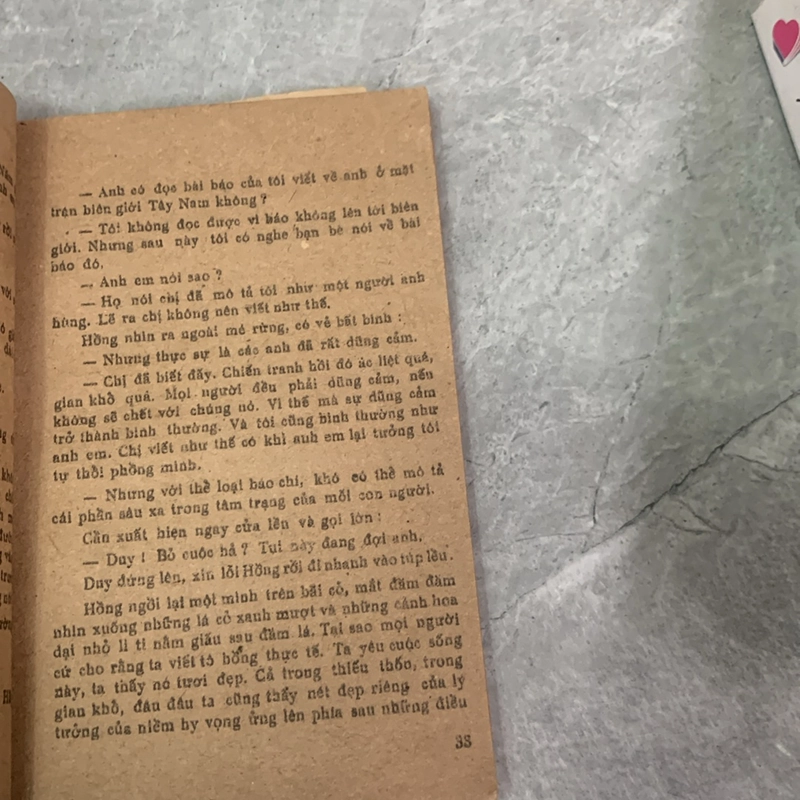 — Anh có đọc bài báo của tôi viết về anh ở mặt
trận biên giới Tây Nam không?
— Tôi không đọc được vì báo không lên tới biên
giới. Nhưng sau này tôi có nghe bạn bè nói về bài
báo đó.
— Anh em nói sao?
— Họ nói chị đã mô tả tôi như một người anh
hùng. Lẽ ra chị không nên viết như thế.
Hồng nhìn ra ngoài mé rừng, có vẻ bất bình:
— Nhưng thực sự là các anh đã rất dũng cảm.
— Chị đã biết đấy. Chiến tranh hồi đó ác liệt quá,
gian khổ quá. Mọi người đều phải dũng cảm, nếu
không sẽ chết với chúng nó. Vì thế mà sự dũng cảm
trở thành bình thường. Và tôi cũng bình thường như
anh em. Chị viết như thế có khi anh em lại tưởng tôi
tự thổi phồng mình.
— Nhưng với thể loại báo chí, khó có thể mô tả
cái phần sâu xa trong tâm trạng của mỗi con người.
Cần xuất hiện ngay cửa lều và gọi lớn:
— Duy! Bỏ cuộc hả? Tụi này đang đợi anh.
Duy đứng lên, xin lỗi Hồng rồi đi nhanh vào túp lều.
Hồng ngồi lại một mình trên bãi cỏ, mắt đăm đăm
nhìn xuống những lá cỏ xanh mượt và những cánh hoa
dại nhỏ li ti nằm giấu sau đám lá. Tại sao mọi người
cứ cho rằng ta viết tô hồng thực tế. Ta yêu cuộc sống
này, ta thấy nó tươi đẹp. Cả trong thiếu thốn, trong
gian khổ, đâu đâu ta cũng thấy nét đẹp riêng của lý
tưởng của niềm hy vọng ửng lên phía sau những điều
33